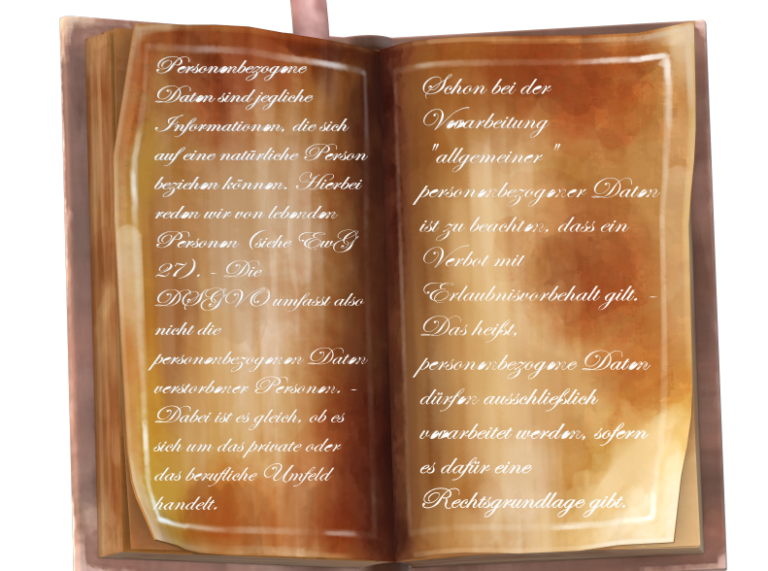 Personenbezogene
Daten sind jegliche
Informationen, die sich
auf eine natürliche Person
beziehen können. Hierbei
reden wir von lebenden
Personen (siehe EwG
27). - Die
DSGVO umfasst also
nicht die
personenbezogenen Daten
verstorbener Personen. -
Dabei ist es gleich, ob es
sich um das private oder
das berufliche Umfeld
handelt.
Schon bei der
Verarbeitung
"allgemeiner "
personenbezogener Daten
ist zu beachten, dass ein
Verbot mit
Erlaubnisvorbehalt gilt. -
Das heißt,
personenbezogene Daten
dürfen ausschließlich
verarbeitet werden, sofern
es dafür eine
Rechtsgrundlage gibt.